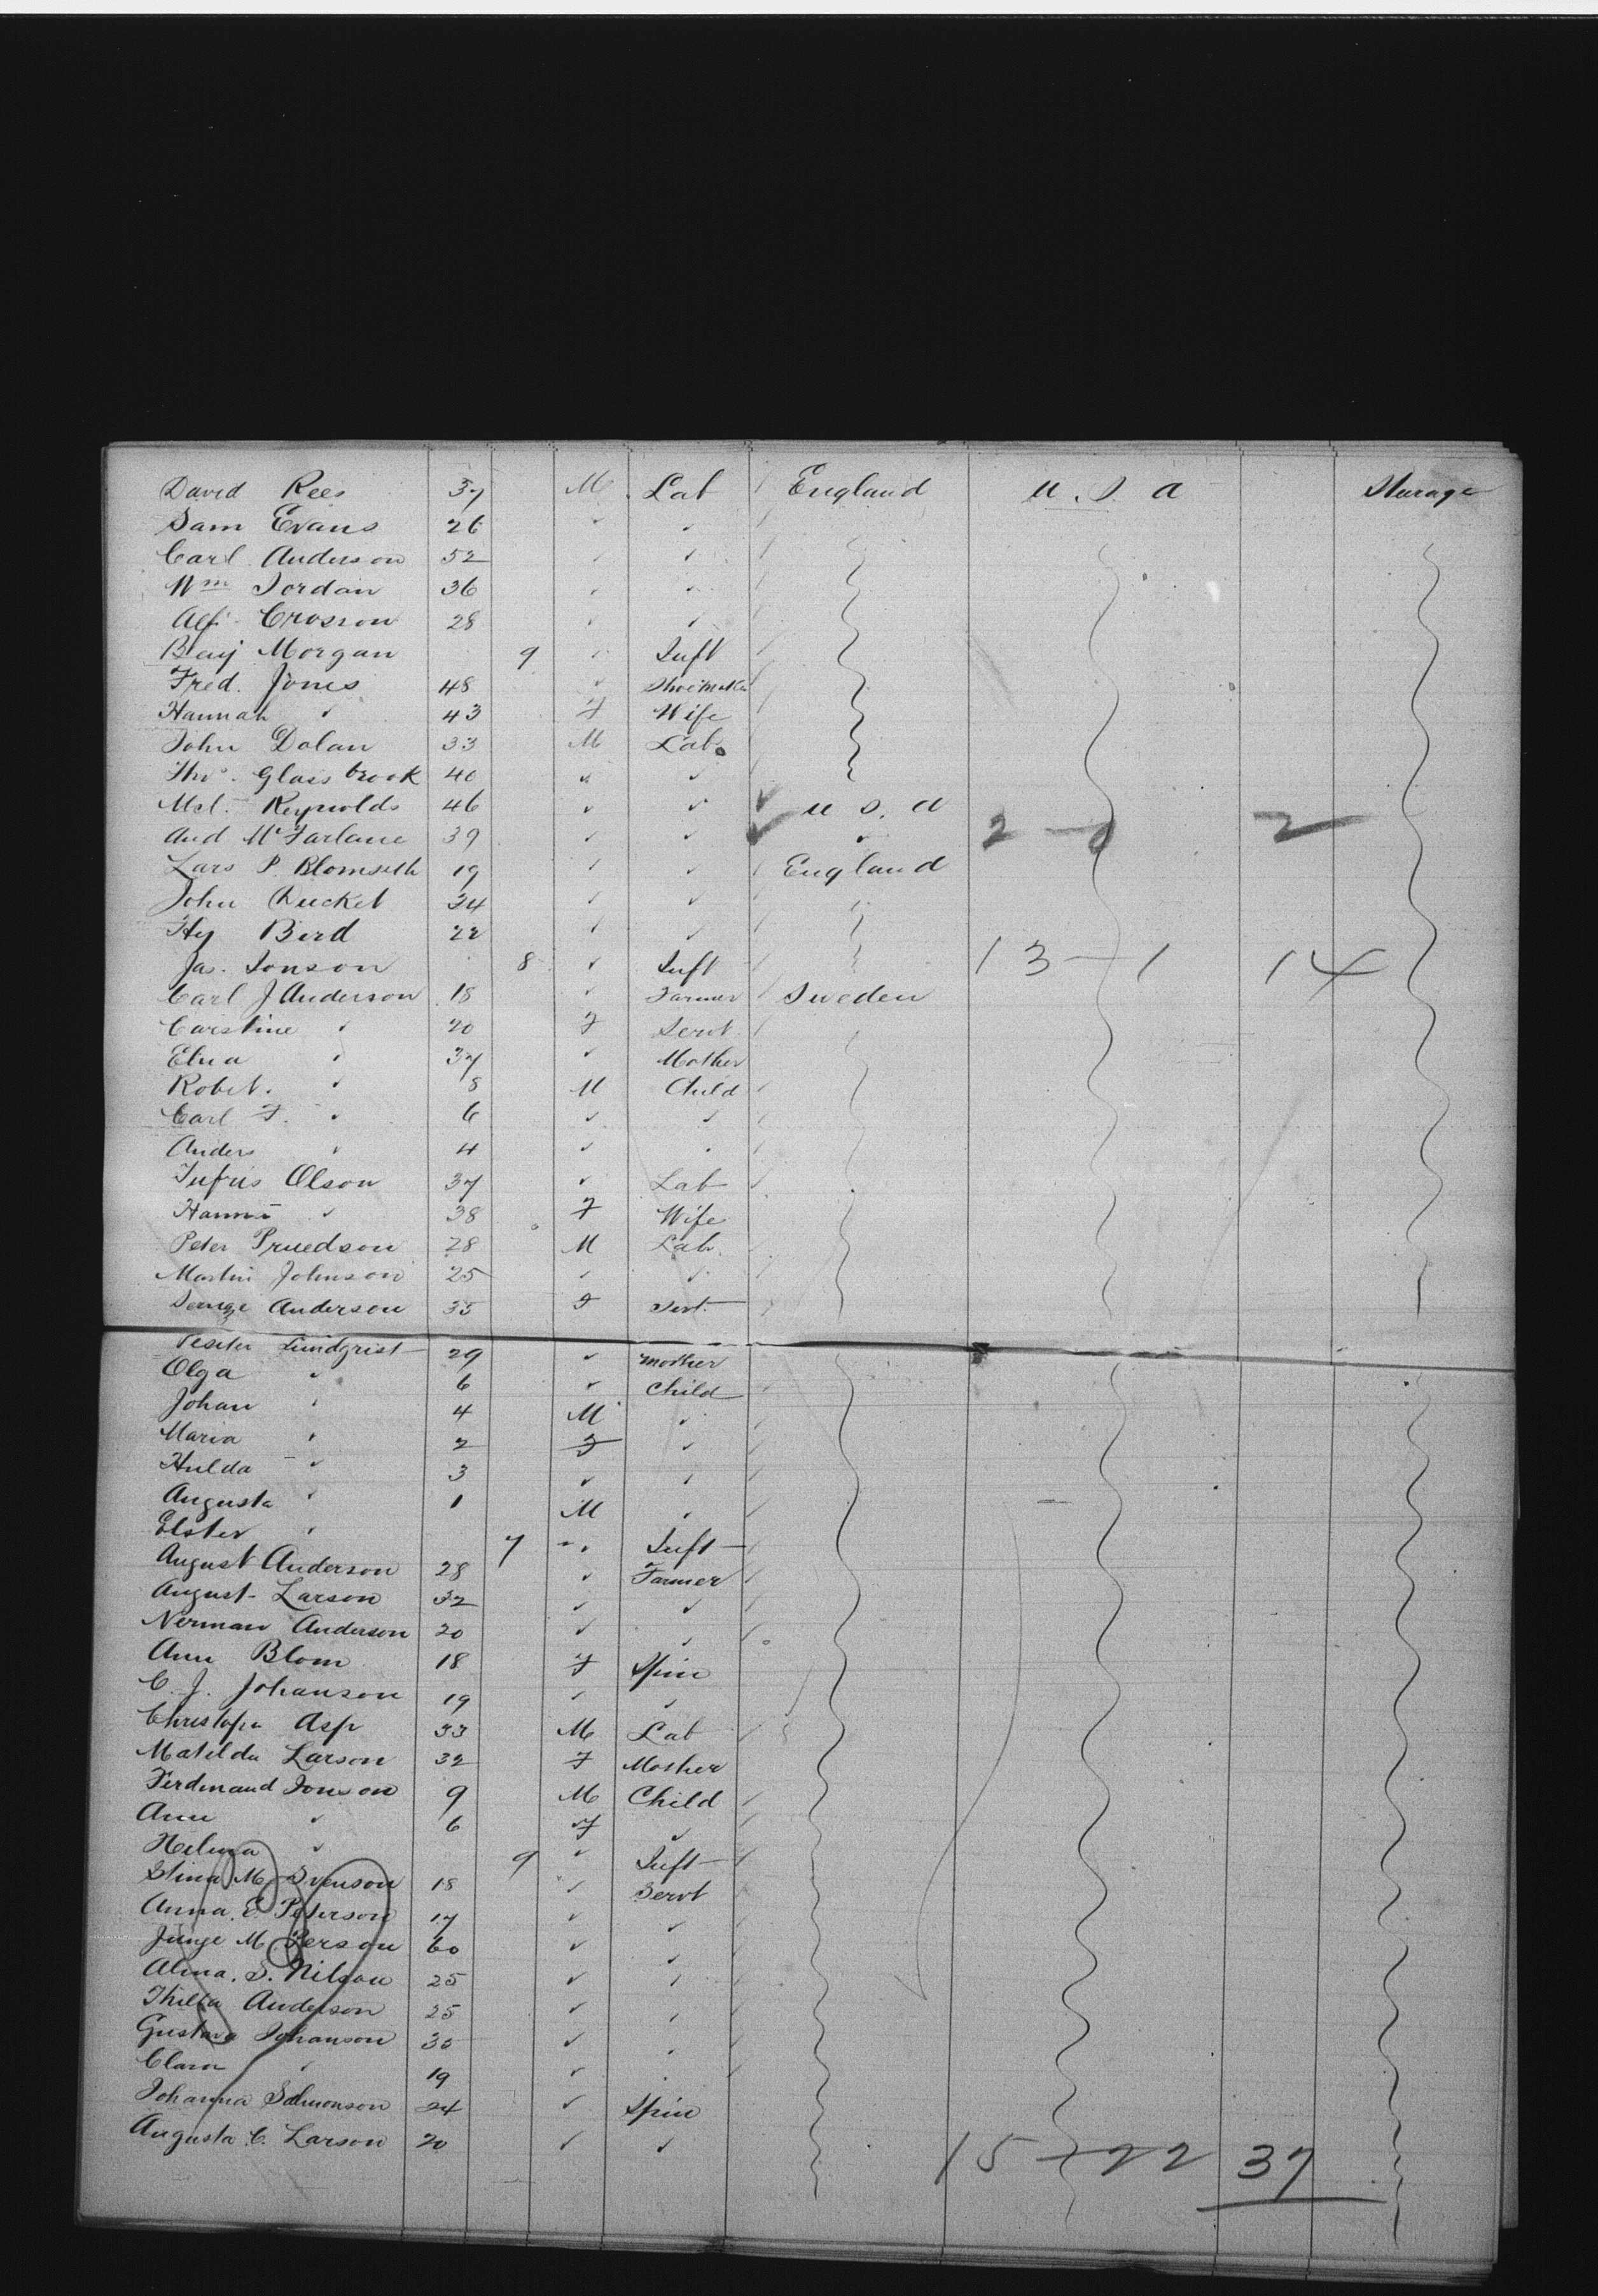 David Rees 37 M Lab England U.S.A Sterage
Sam Evans 26 ✓ ✓
Carl Anderson 52 ✓ ✓
Wm Jordan 36 ✓ ✓
Alf. Crosson 28 ✓ ✓
Benj Morgan 9 ✓ Inft
Fred. Jones 48 ✓ Shoemaker
Hannah ✓ 43 F Wife
John Dolan 33 M Lab.
Thos. Glaisbrook 40 " ✓
Mcl. Reynolds 46 ✓ ✓ ✓ U S. A
And McFarlane 39 ✓ ✓ ✓ ✓ 2 - 0 2
Lars P. Blomseth 19 ✓ ✓ England
John Ducket 34 ✓ ✓
Hy Bird 22 ✓ ✓
Jas. Jonson 8 ✓ Inft 13 - 1 14
Carl J Anderson 18 ✓ Farmer Sweden
Carstine ✓ 20 F Servt.
Elna ✓ 37 ✓ Mother
Robet. ✓ 8 M Child
Carl F. ✓ 6 ✓ ✓
Anders ✓ 4 ✓ ✓
Olson 37 ✓ Lab
Hanna ✓ 38 F Wife
Peter Pruedson 28 M Lab.
Martin Johnson 25 ✓ ✓
Anderson 35 F Sert.
Lundgrist 29 ✓ Mother
Olga ✓ 6 ✓ Child
Johan ✓ 4 M ✓
Maria ✓ 2 F ✓
Hulda ✓ 3 ✓ ✓
Augusta ✓ 1 M ✓
Elster ✓ 7 ✓ Inft
August Anderson 28 ✓ Farmer
August Larson 32 ✓ ✓
Nerman Anderson 20 ✓ ✓
Ann Blom 18 F Spin
C. J. Johanson 19 ✓ ✓
Christopher Asp 33 M Lab
Matilda Larson 32 F Mother
Ferdinand Jonson 9 M Child
Ann ✓ 6 F ✓
Helma ✓ 9 ✓ Inft
Stina M. Svenson 18 ✓ Servt
Anna. E. Peterson 17 ✓ ✓
Junge M Person 60 ✓ ✓
Alma. S. Nilson 25 ✓ ✓
Thilla Anderson 25 ✓ ✓
Gustava Johanson 30 ✓ ✓
Clara ✓ 19 ✓ ✓
Johanna Salmonson 24 ✓ Spin
Augusta C. Larson 20 ✓ ✓ 15 - 22 37